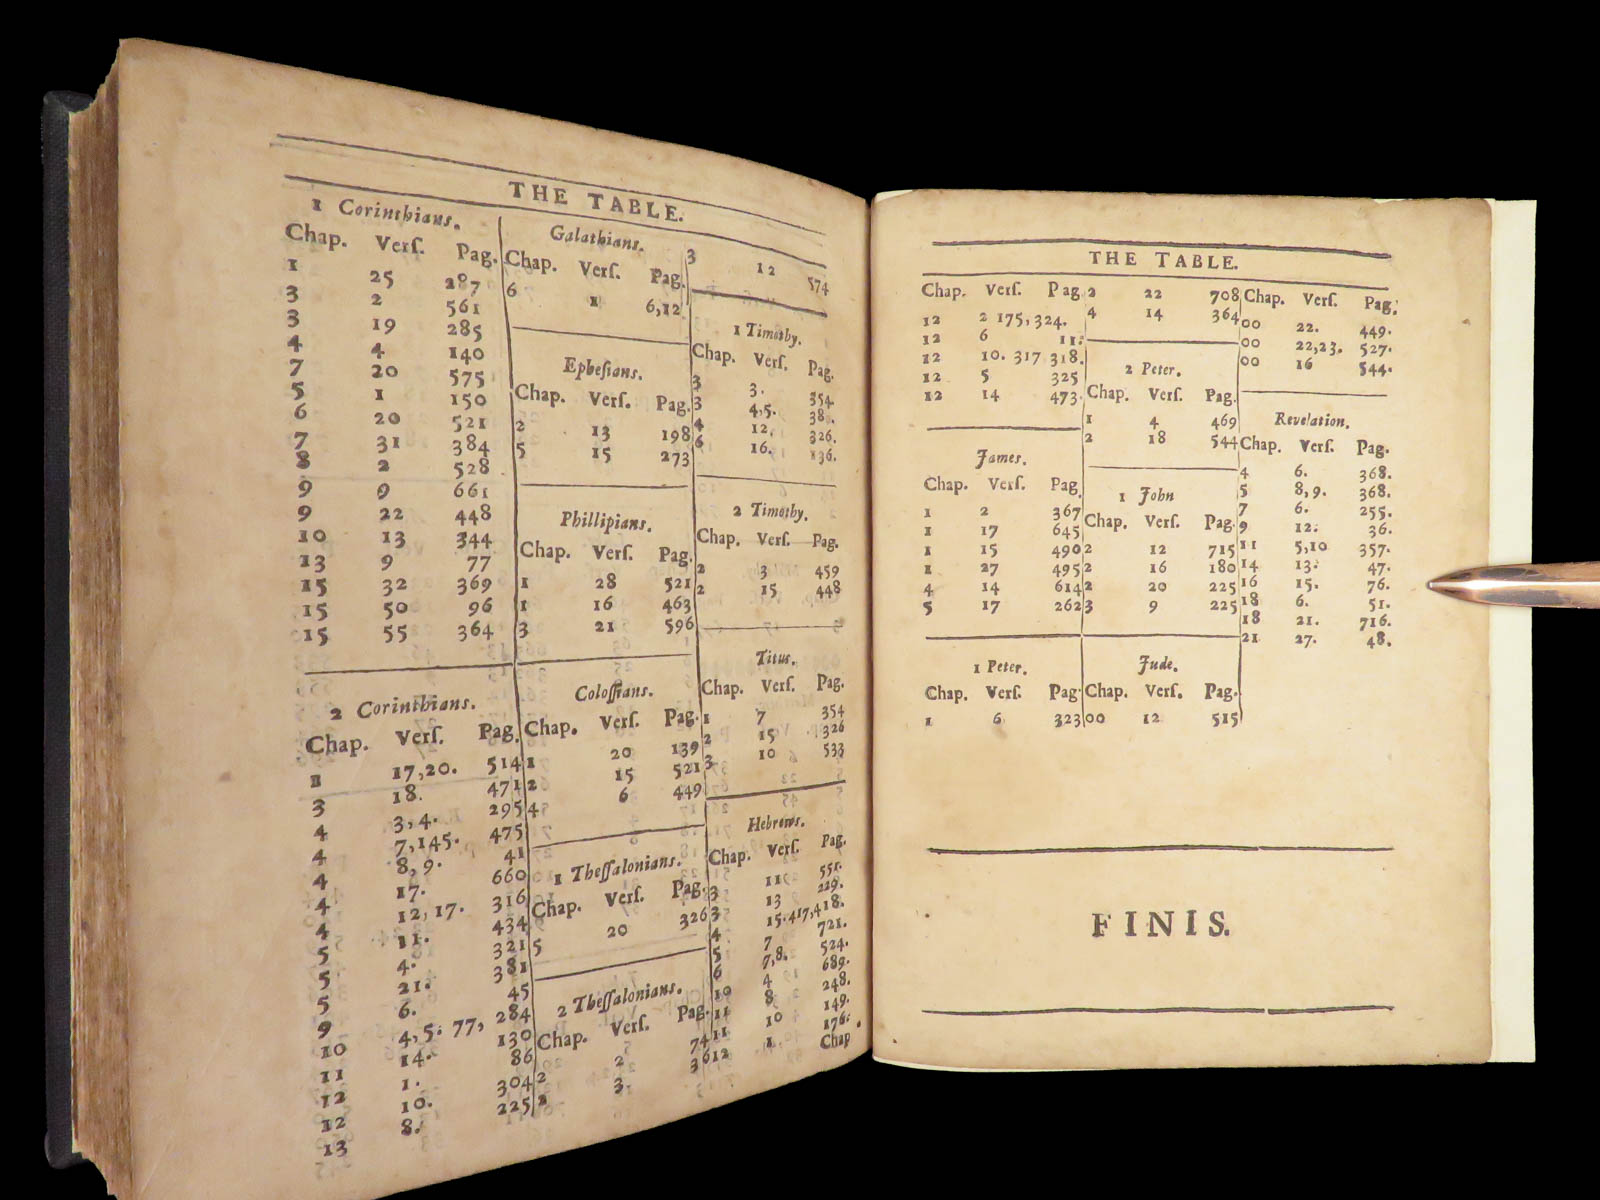 THE TABLE.
1 Corinthians.
Chap. Verſ. Pag.
1 25 287
3 2 561
3 19 285
4 4 140
7 20 575
5 1 150
6 20 521
7 31 384
8 2 528
9 9 661
9 22 448
10 13 344
13 9 77
15 32 369
15 50 96
15 55 364
2 Corinthians.
Chap. Verſ. Pag.
1 17,20. 514
3 18. 471
4 3,4. 295
4 7,145. 475
4 8,9. 41
4 17. 660
4 12,17. 316
5 11. 434
5 4. 321
5 21. 381
9 6. 45
10 4,5. 77, 284
11 14. 130
12 1. 86
12 10. 304
13 8. 225
Galathians.
Chap. Verſ. Pag.
6 1 6,12
Epheſians.
Chap. Verſ. Pag.
2 13 198
5 15 273
Phillipians.
Chap. Verſ. Pag.
1 28 521
1 16 463
3 21 596
Coloſſians.
Chap. Verſ. Pag.
1 20 139
2 15 521
4 6 449
1 Theſſalonians.
Chap. Verſ. Pag.
5 20 326
2 Theſſalonians.
Chap. Verſ. Pag.
2 2 74
2 3 36
3 12 574
1 Timothy.
Chap. Verſ. Pag.
3 3. 354
3 4,5. 38.
4 12. 326.
6 16. 136.
2 Timothy.
Chap. Verſ. Pag.
2 3 459
2 15 448
Titus.
Chap. Verſ. Pag.
1 7 354
2 15 326
3 10 533
Hebrews.
Chap. Verſ. Pag.
3 11 551.
3 13 229.
4 15. 417,418.
5 7 721.
6 7,8. 524.
10 4 689.
11 8 248.
11 10 149.
12 1 176.
Chap.
THE TABLE.
Chap. Verſ. Pag.
12 2 175,324.
12 6 11.
12 10. 317 318.
12 5 325
12 14 473
James.
Chap. Verſ. Pag.
1 2 367
1 17 645
1 15 490
1 27 495
4 14 614
5 17 262
1 Peter.
Chap. Verſ. Pag
1 6 323
2 22 708
4 14 364
2 Peter.
Chap. Verſ. Pag.
1 4 469
2 18 544
1 John
Chap. Verſ. Pag.
2 12 715
2 16 180
2 20 225
3 9 225
Jude.
Chap. Verſ. Pag.
00 12 515
Chap. Verſ. Pag.
00 22. 449.
00 22,23. 527.
00 16 544.
Revelation.
Chap. Verſ. Pag.
4 6. 368.
5 8,9. 368.
7 6. 255.
9 12. 36.
11 5,10 357.
14 13. 47.
16 15. 76.
18 6. 51.
18 21. 716.
21 27. 48.
FINIS.